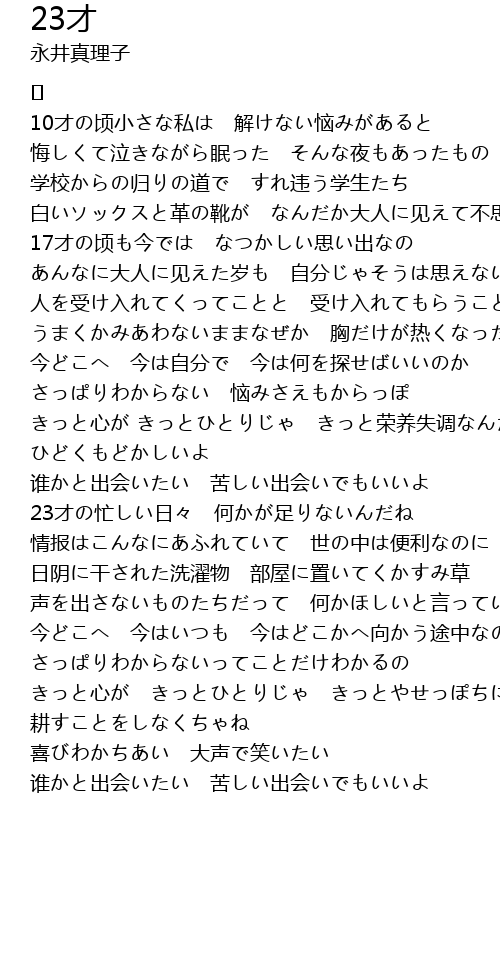 23才
永井真理子
[]
10才の顷小さな私は　解けない悩みがあると
悔しくて泣きながら眠った　そんな夜もあったもの
学校からの归りの道で　すれ违う学生たち
白いソックスと革の靴が　なんだか大人に见えて不思
17才の顷も今では　なつかしい思い出なの
あんなに大人に见えた岁も　自分じゃそうは思えない
人を受け入れてくってことと　受け入れてもらうこと
うまくかみあわないままなぜか　胸だけが热くなった
今どこへ　今は自分で　今は何を探せばいいのか
さっぱりわからない　悩みさえもからっぽ
きっと心が きっとひとりじゃ　きっと荣养失调なんだ
ひどくもどかしいよ
谁かと出会いたい　苦しい出会いでもいいよ
23才の忙しい日々　何かが足りないんだね
情报はこんなにあふれていて　世の中は便利なのに
日阴に干された洗濯物　部屋に置いてくかすみ草
声を出さないものたちだって　何かほしいと言ってい
今どこへ　今はいつも　今はどこかへ向かう途中なの
さっぱりわからないってことだけわかるの
きっと心が　きっとひとりじゃ　きっとやせっぽちに
耕すことをしなくちゃね
喜びわかちあい　大声で笑いたい
谁かと出会いたい　苦しい出会いでもいいよ